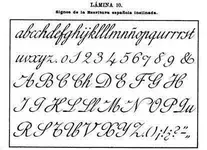 LÁMINA 10.
Signos de la Escritura española inclinada.
abcchdefghijklllmnñopqurrrst
uvxyz. 0 1 2 3 4 5 6 7 8 9 &
A B C Ch D E F G H
I J H L Ll M N O P Qu
R S T U V X Y Z. () ; ¡ ! ¿ ? = „